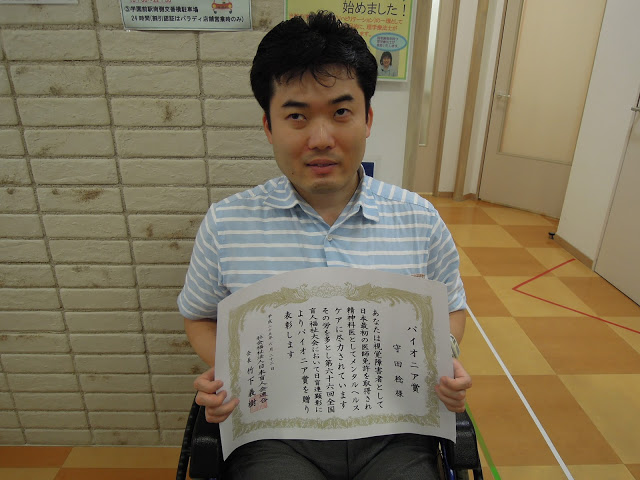 ③学園前駅南側交番横駐車場
24時間(割引認証はパラディ店舗営業時のみ)
始めました!
パイオニア賞
守田稔様
あなたは視覚障害者として
日本最初の医師免許を取得され
精神科医としてメンタルヘルス
ケアに尽力されています
その労を多とし第六十六回全国
盲人福祉大会において日盲連顕彰に
よりパイオニア賞を贈り
表彰します
社会福祉法人日本盲人会連合
会長 竹下義樹